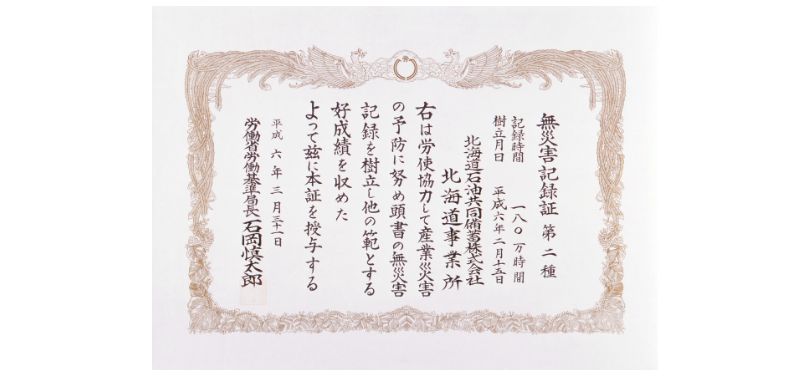 無災害記録証 第二種
記録時間 一八〇万時間
樹立月日 平成六年二月十五日
北海道石油共同備蓄株式会社
北海道事業所
右は労使協力して産業災害
の予防に努め頭書の無災害
記録を樹立し他の範とする
好成績を収めた
よつて茲に本証を授与する
平成六年三月三十一日
労働省労働基準局長 石岡慎太郎